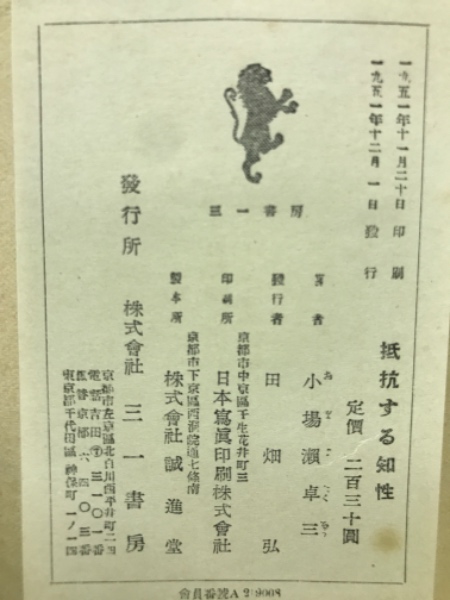 一九五一年十一月二十日印刷
一九五一年十二月一日發行
抵抗する知性
定價 二百三十圓
著者 小場瀨卓三
發行者 田畑弘
京都市中京區壬生花井町三
印刷所 日本寫眞印刷株式會社
京都市下京區西洞院通七條南
製本所 株式會社誠進堂
三一書房
發行所 株式會社 三一書房
京都市左京區北白川西平井町二四
電話吉田⑦三一〇一番
振替京都六四〇三番
東京都千代田區神保町一ノ一四
會員番號A219008